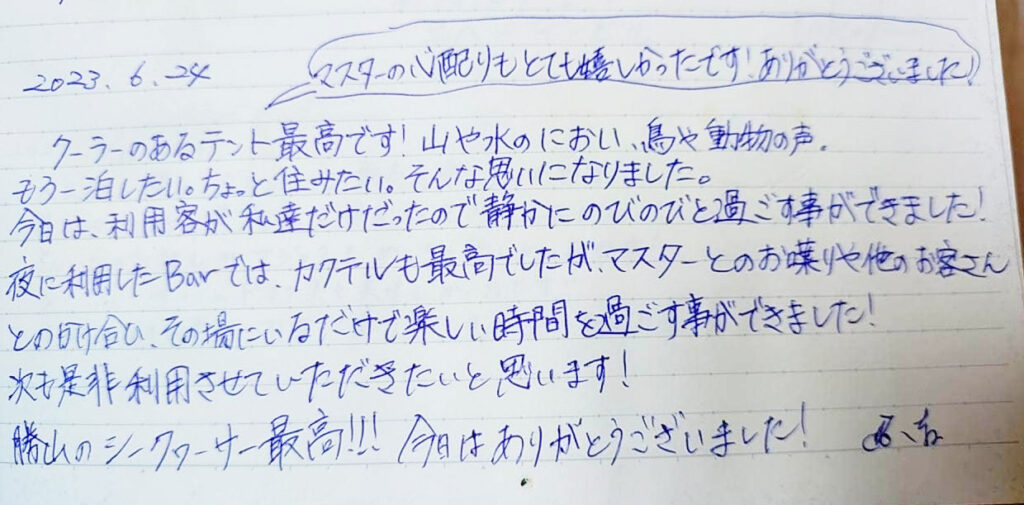 2023.6.24
マスターの心配りもとても嬉しかったです!ありがとうございました!
クーラーのあるテント最高です!山や水のにおい、鳥や動物の声。
もう一泊したい。ちょっと住みたい。そんな思いになりました。
今日は、利用客が私達だけだったので静かにのびのびと過ごす事ができました!
夜に利用したBarでは、カクテルも最高でしたが、マスターとのお喋りや他のお客さん
との掛け合い、その場にいるだけで楽しい時間を過ごす事ができました!
次も是非利用させていただきたいと思います!
勝山のシークヮーサー最高!!! 今日はありがとうございました!